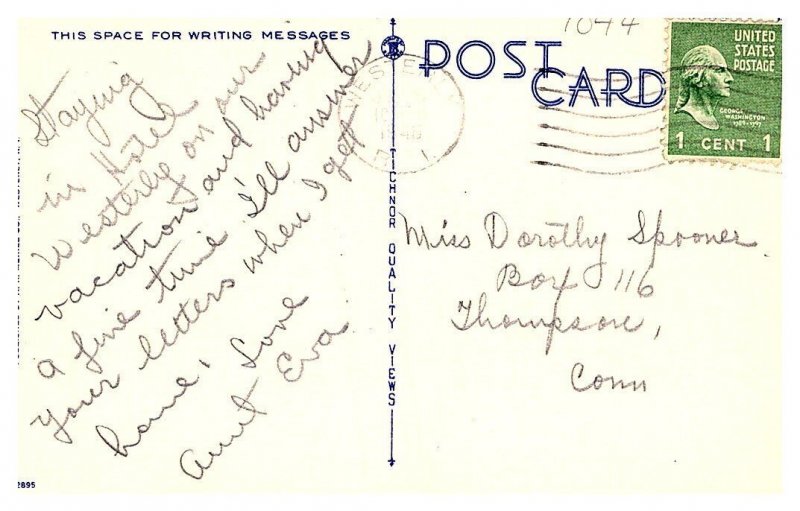 THIS SPACE FOR WRITING MESSAGES
Staying
in Hotel
Westerly on our
vacation and having
a fine time I'll answer
your letters when I get
home. Love
Aunt Eva
2895
TICHNOR QUALITY VIEWS
1044
POST
CARD
WESTERLY
R. I.
UNITED
STATES
POSTAGE
GEORGE
WASHINGTON
1789-1797
1 CENT 1
Miss Dorothy Spooner
Box 116
Thompson,
Conn